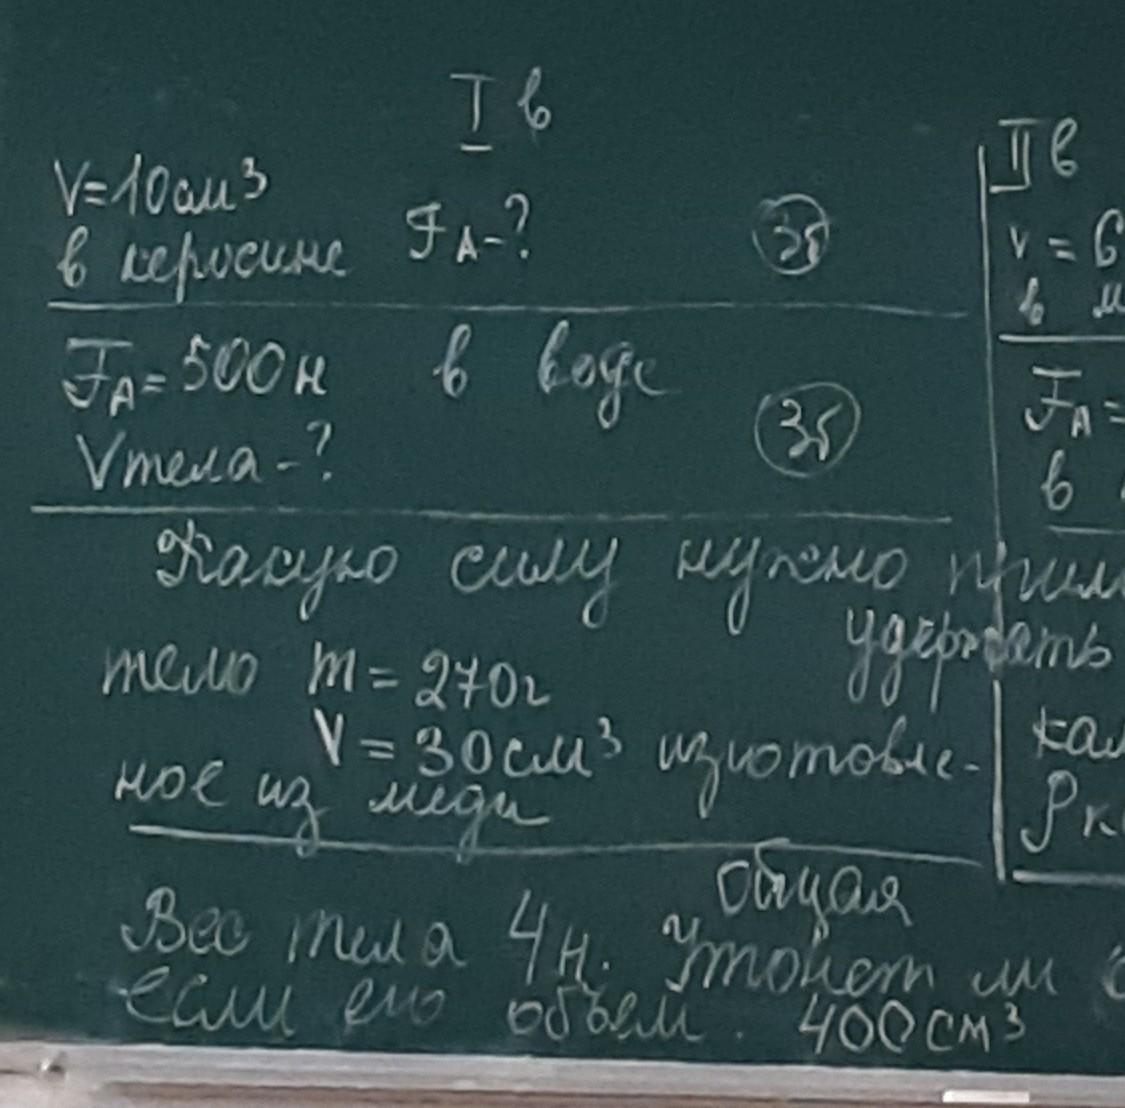 I в
V=10см³
в керосине F_A-? 3б
F_A=500н в воде
Vтела-? 3б
Какую силу нужно
удержать
тело m=270г
V=30см³ изготовле-
ное из меди
общая
Вес тела 4н. Утонет ли
если его объем. 400см³
II в
V=6
в м
F_A=
в
кал
ρк